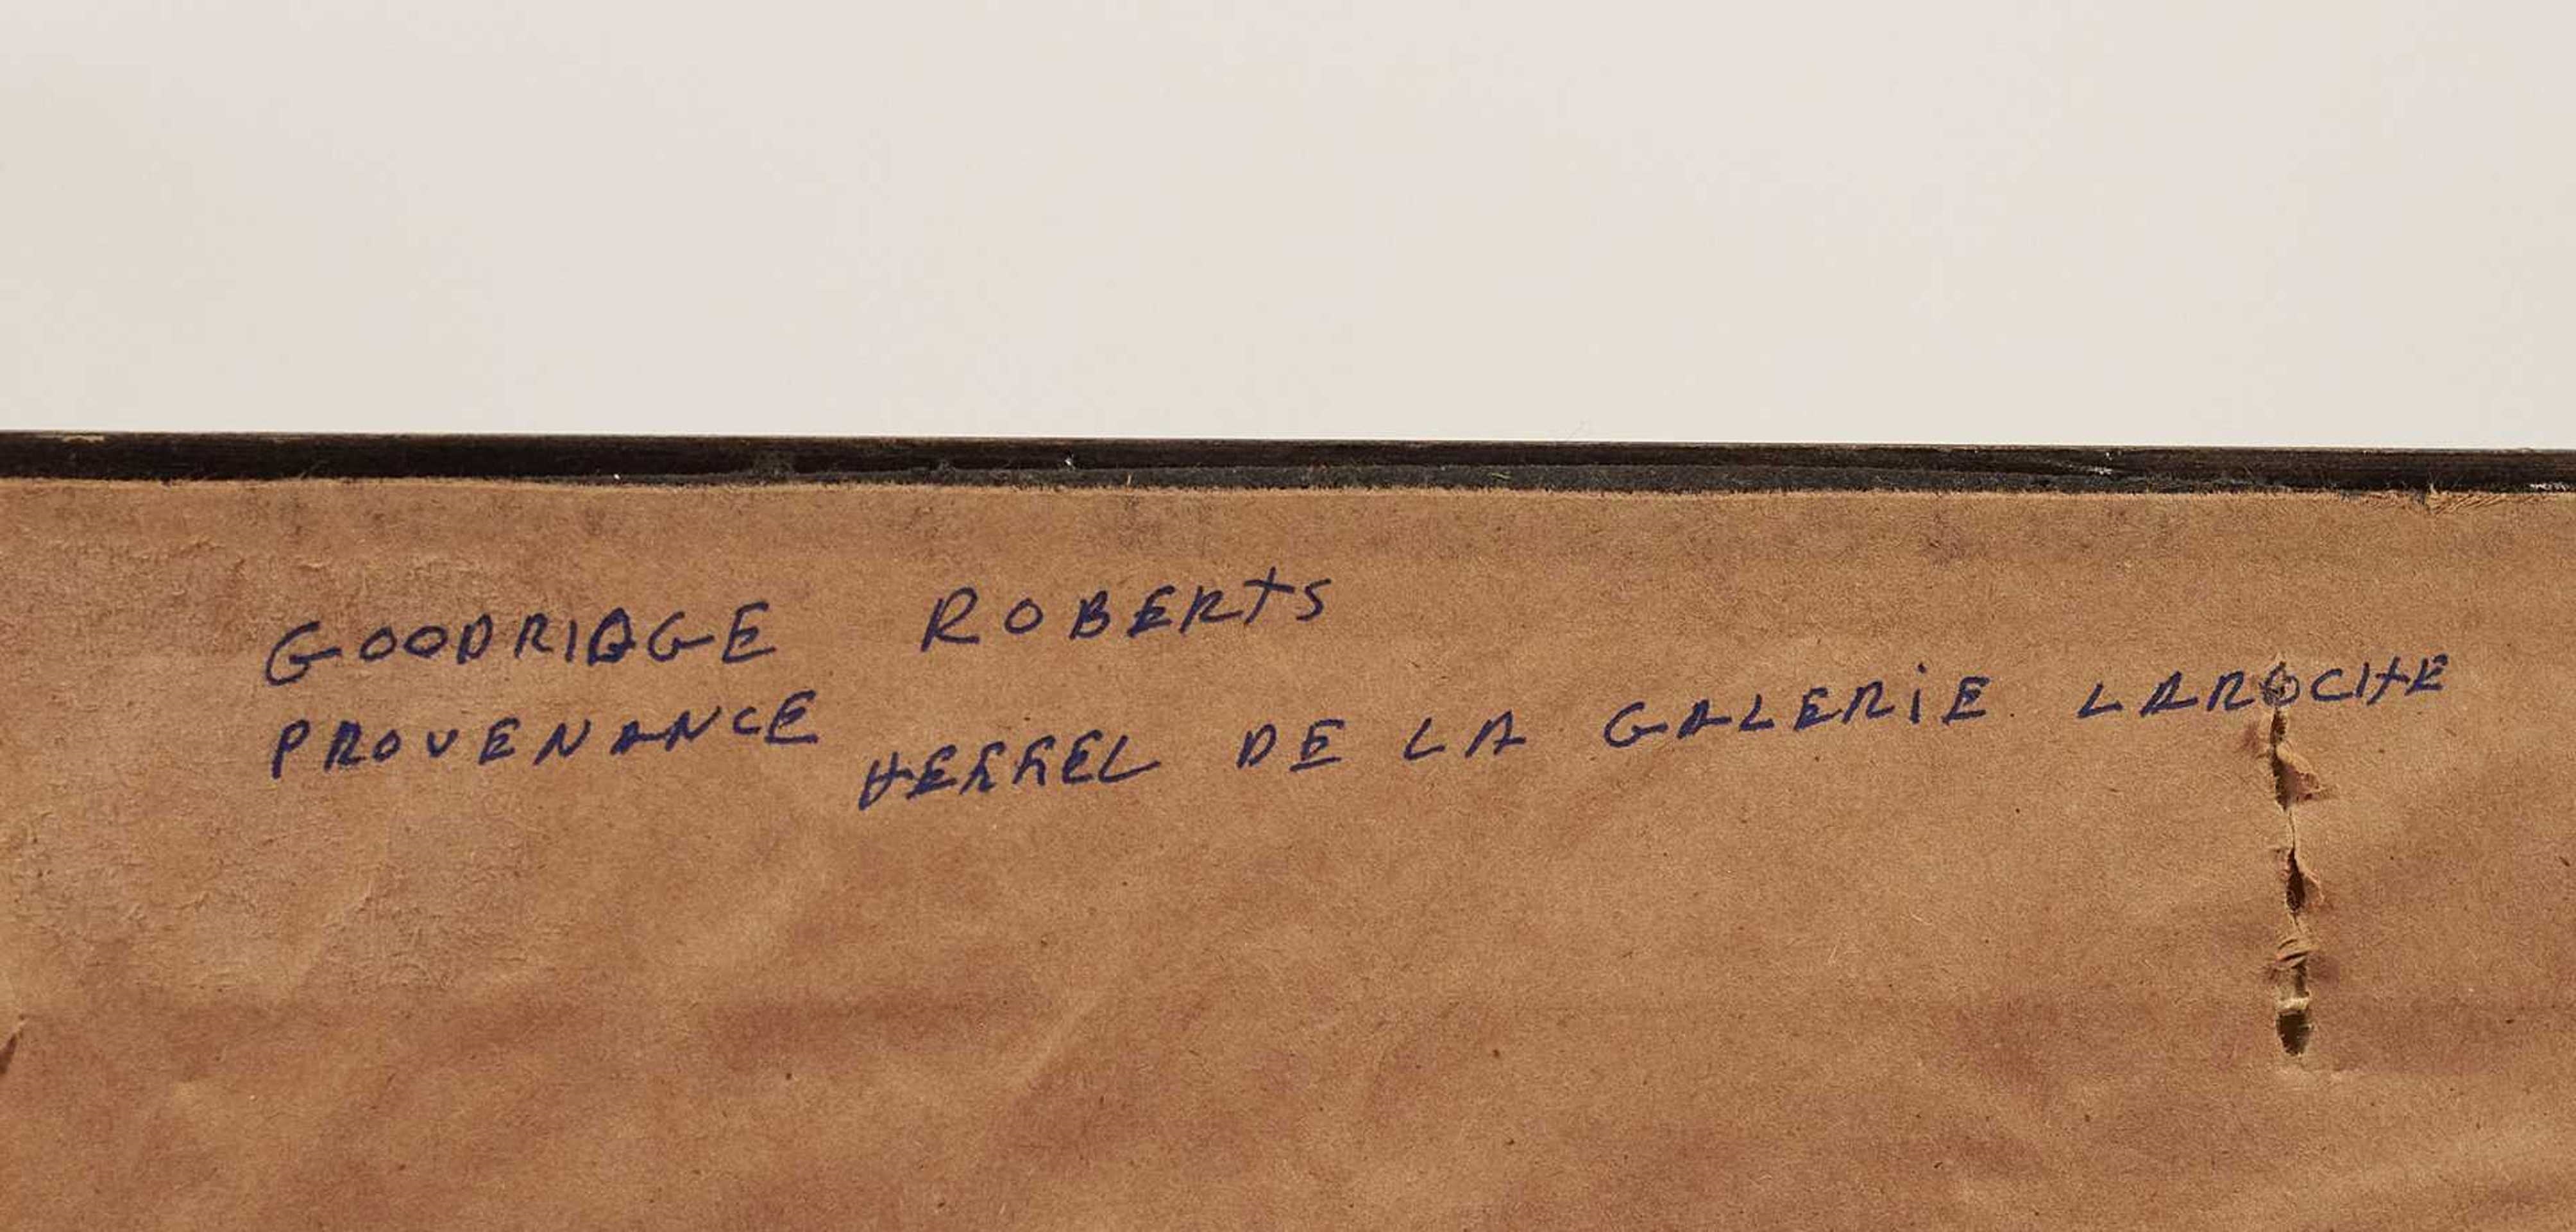 GOODRIDGE ROBERTS
PROVENANCE DE LA GALERIE LAROCHE